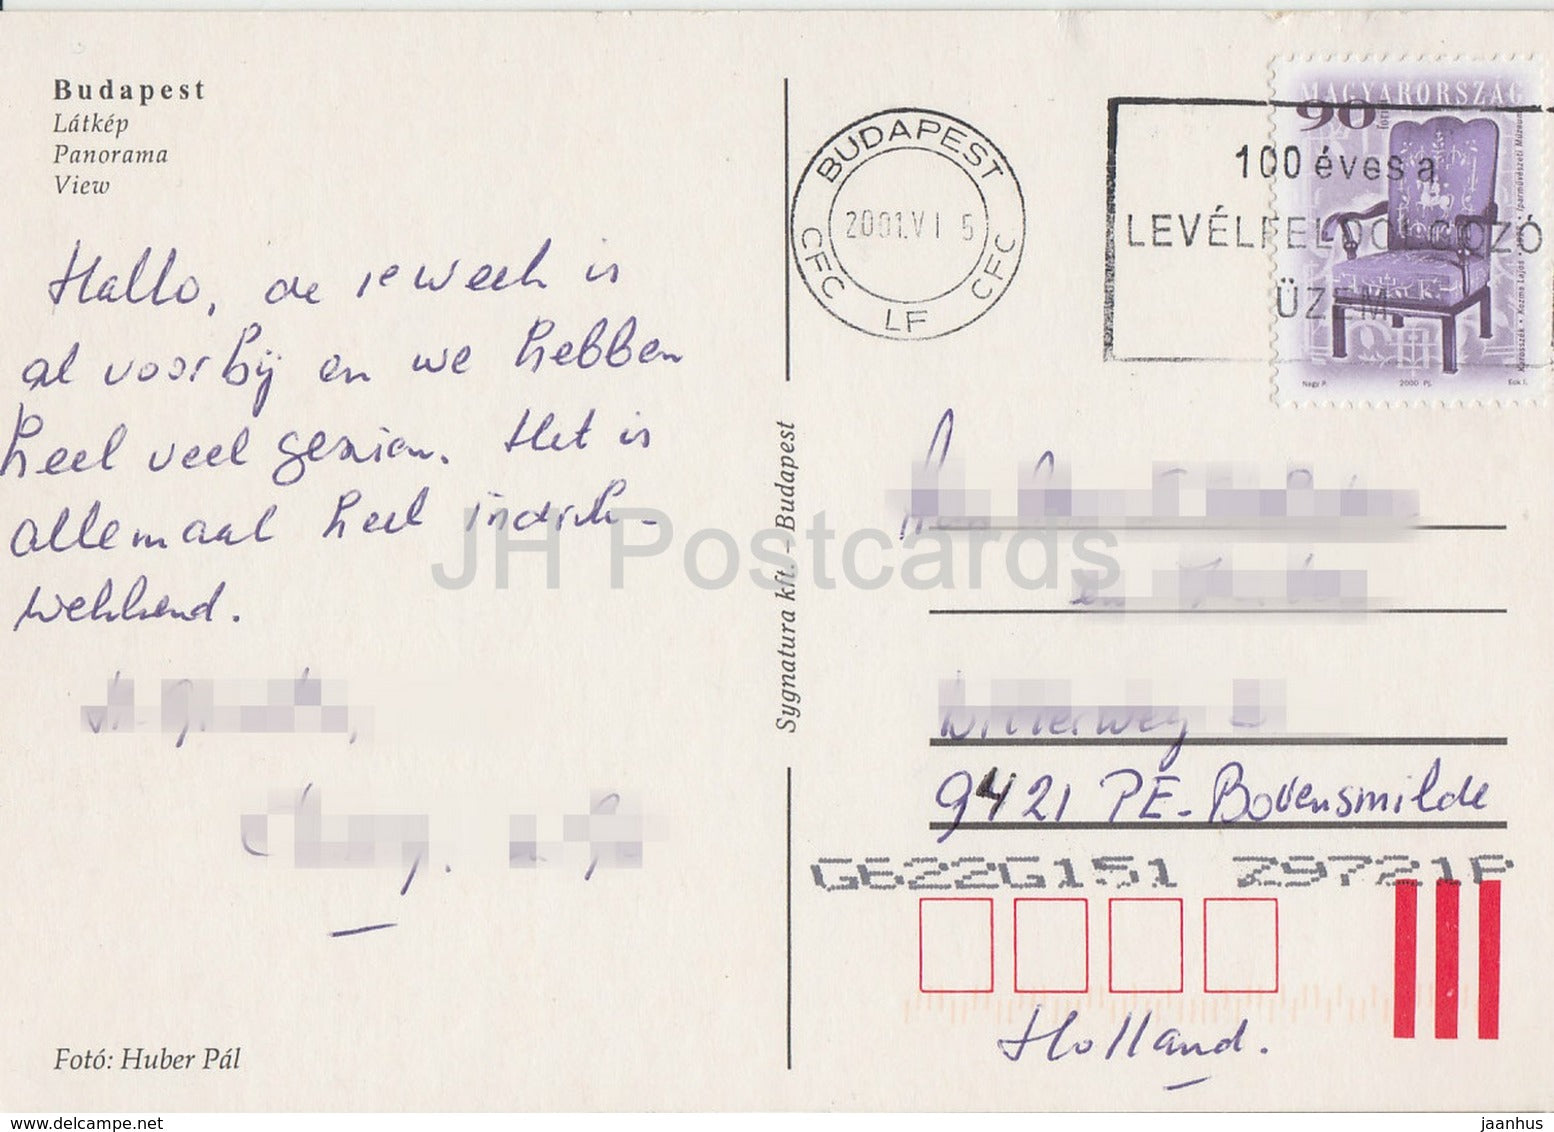 Budapest
Látkép
Panorama
View
Hallo, de 1e week is
al voorbij en we hebben
heel veel gezien. Het is
allemaal heel indruk-
wekkend.
Fotó: Huber Pál
Sygnatura kft. - Budapest
BUDAPEST
2001.VI 5
CFC CFC
LF
100 éves a
LEVÉLFELDOLGOZÓ
ÜZEM
MAGYARORSZÁG
90
Karosszék • Kozma Lajos • Iparművészeti Múzeum
Nagy P. 2000 PJ.
en
9421 PE-Bovensmilde
G622G151 Z9721P
Holland.
JH Postcards
www.delcampe.net
jaanhus